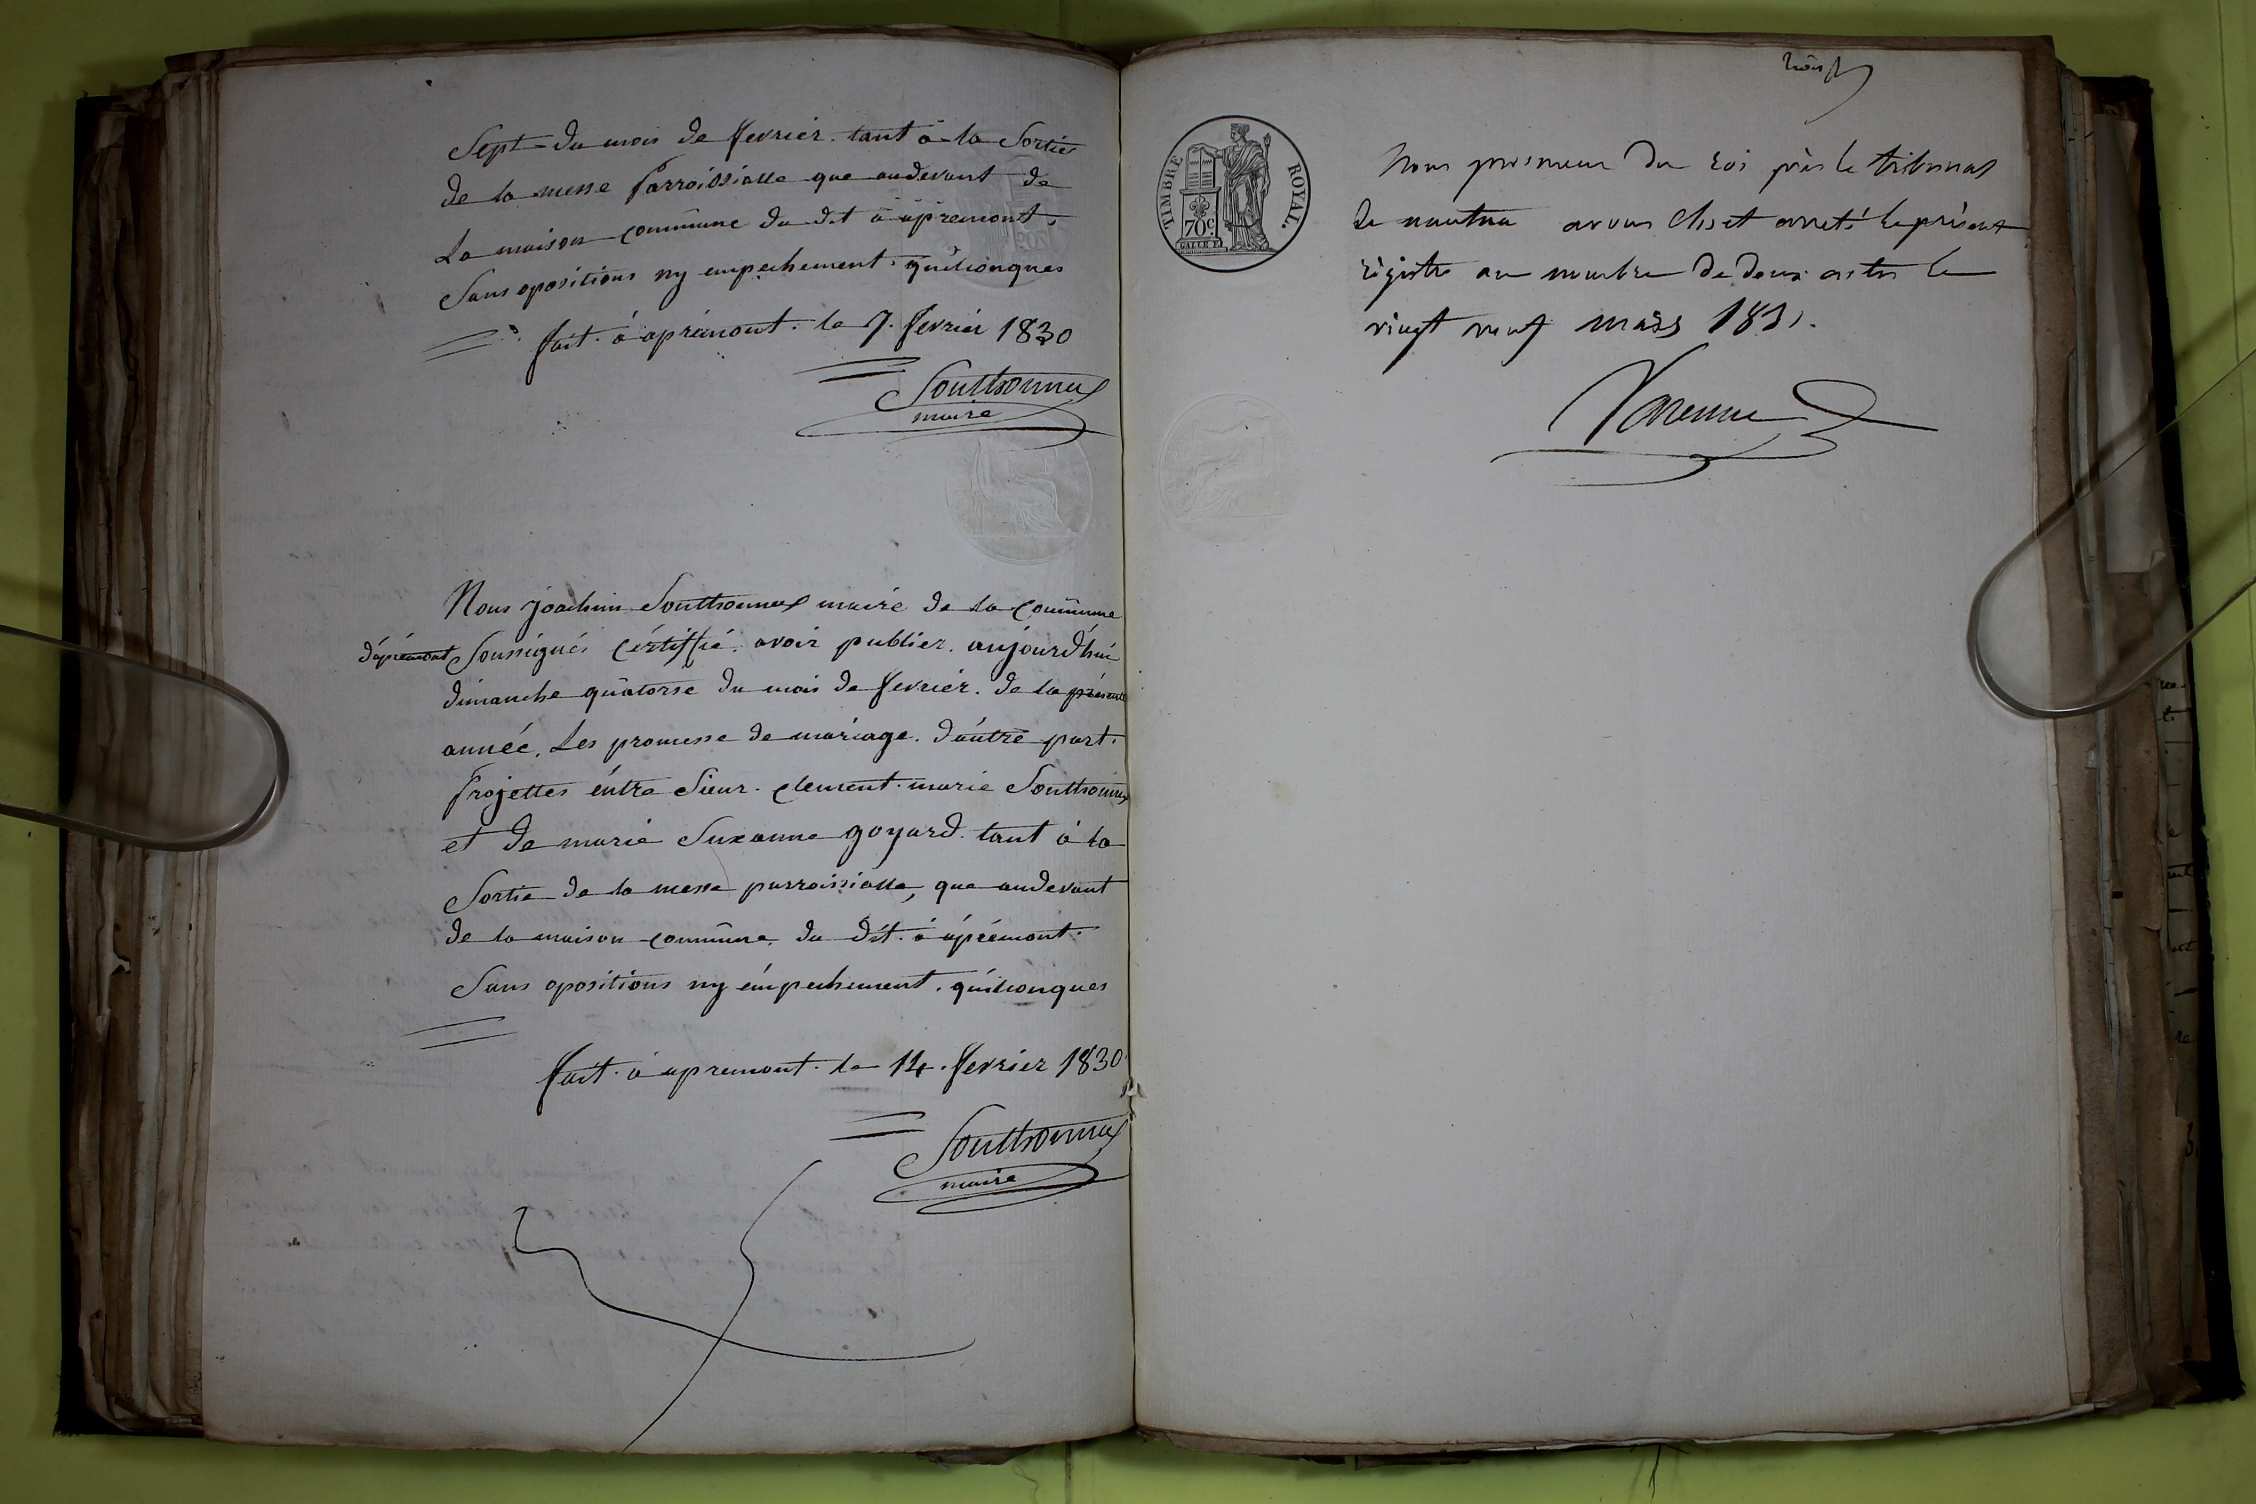 Sept du mois de fevrier. tant a la Sortie
de la messe Parroissialle que audevant de
La maison commune du dit à àpremont.
Sans opositions ny empechement. quélconques
fait. á aprémont. le 7. fevrier 1830
Southonnax
maire
Nous joachim Southonnax maire de la commune
d'apremont Soussignés Cértiffié. avoir publier. aujourdhui
dimanche quatorse du mois de fevrier. de la présente
année, Les promesse de mariage. d'autre part.
Projettes éntre Sieur. clement. marie Southonnax
et de marie Suzanne goyard. tant á la
Sortie de la messe parroissialle, que audevant
de la maison commune du dit. á áprémont.
Sans opositions ny émpechement. quélconques
fait. á apremont. le 14. fevrier 1830
Southonnax
maire
trois
TIMBRE ROYAL.
70c
Nous procureur du roi près le tribunal
de nantua avons clos et arreté le présent
régistre au nombre de deux actes le
vingt neuf mars 1831.
Varenne